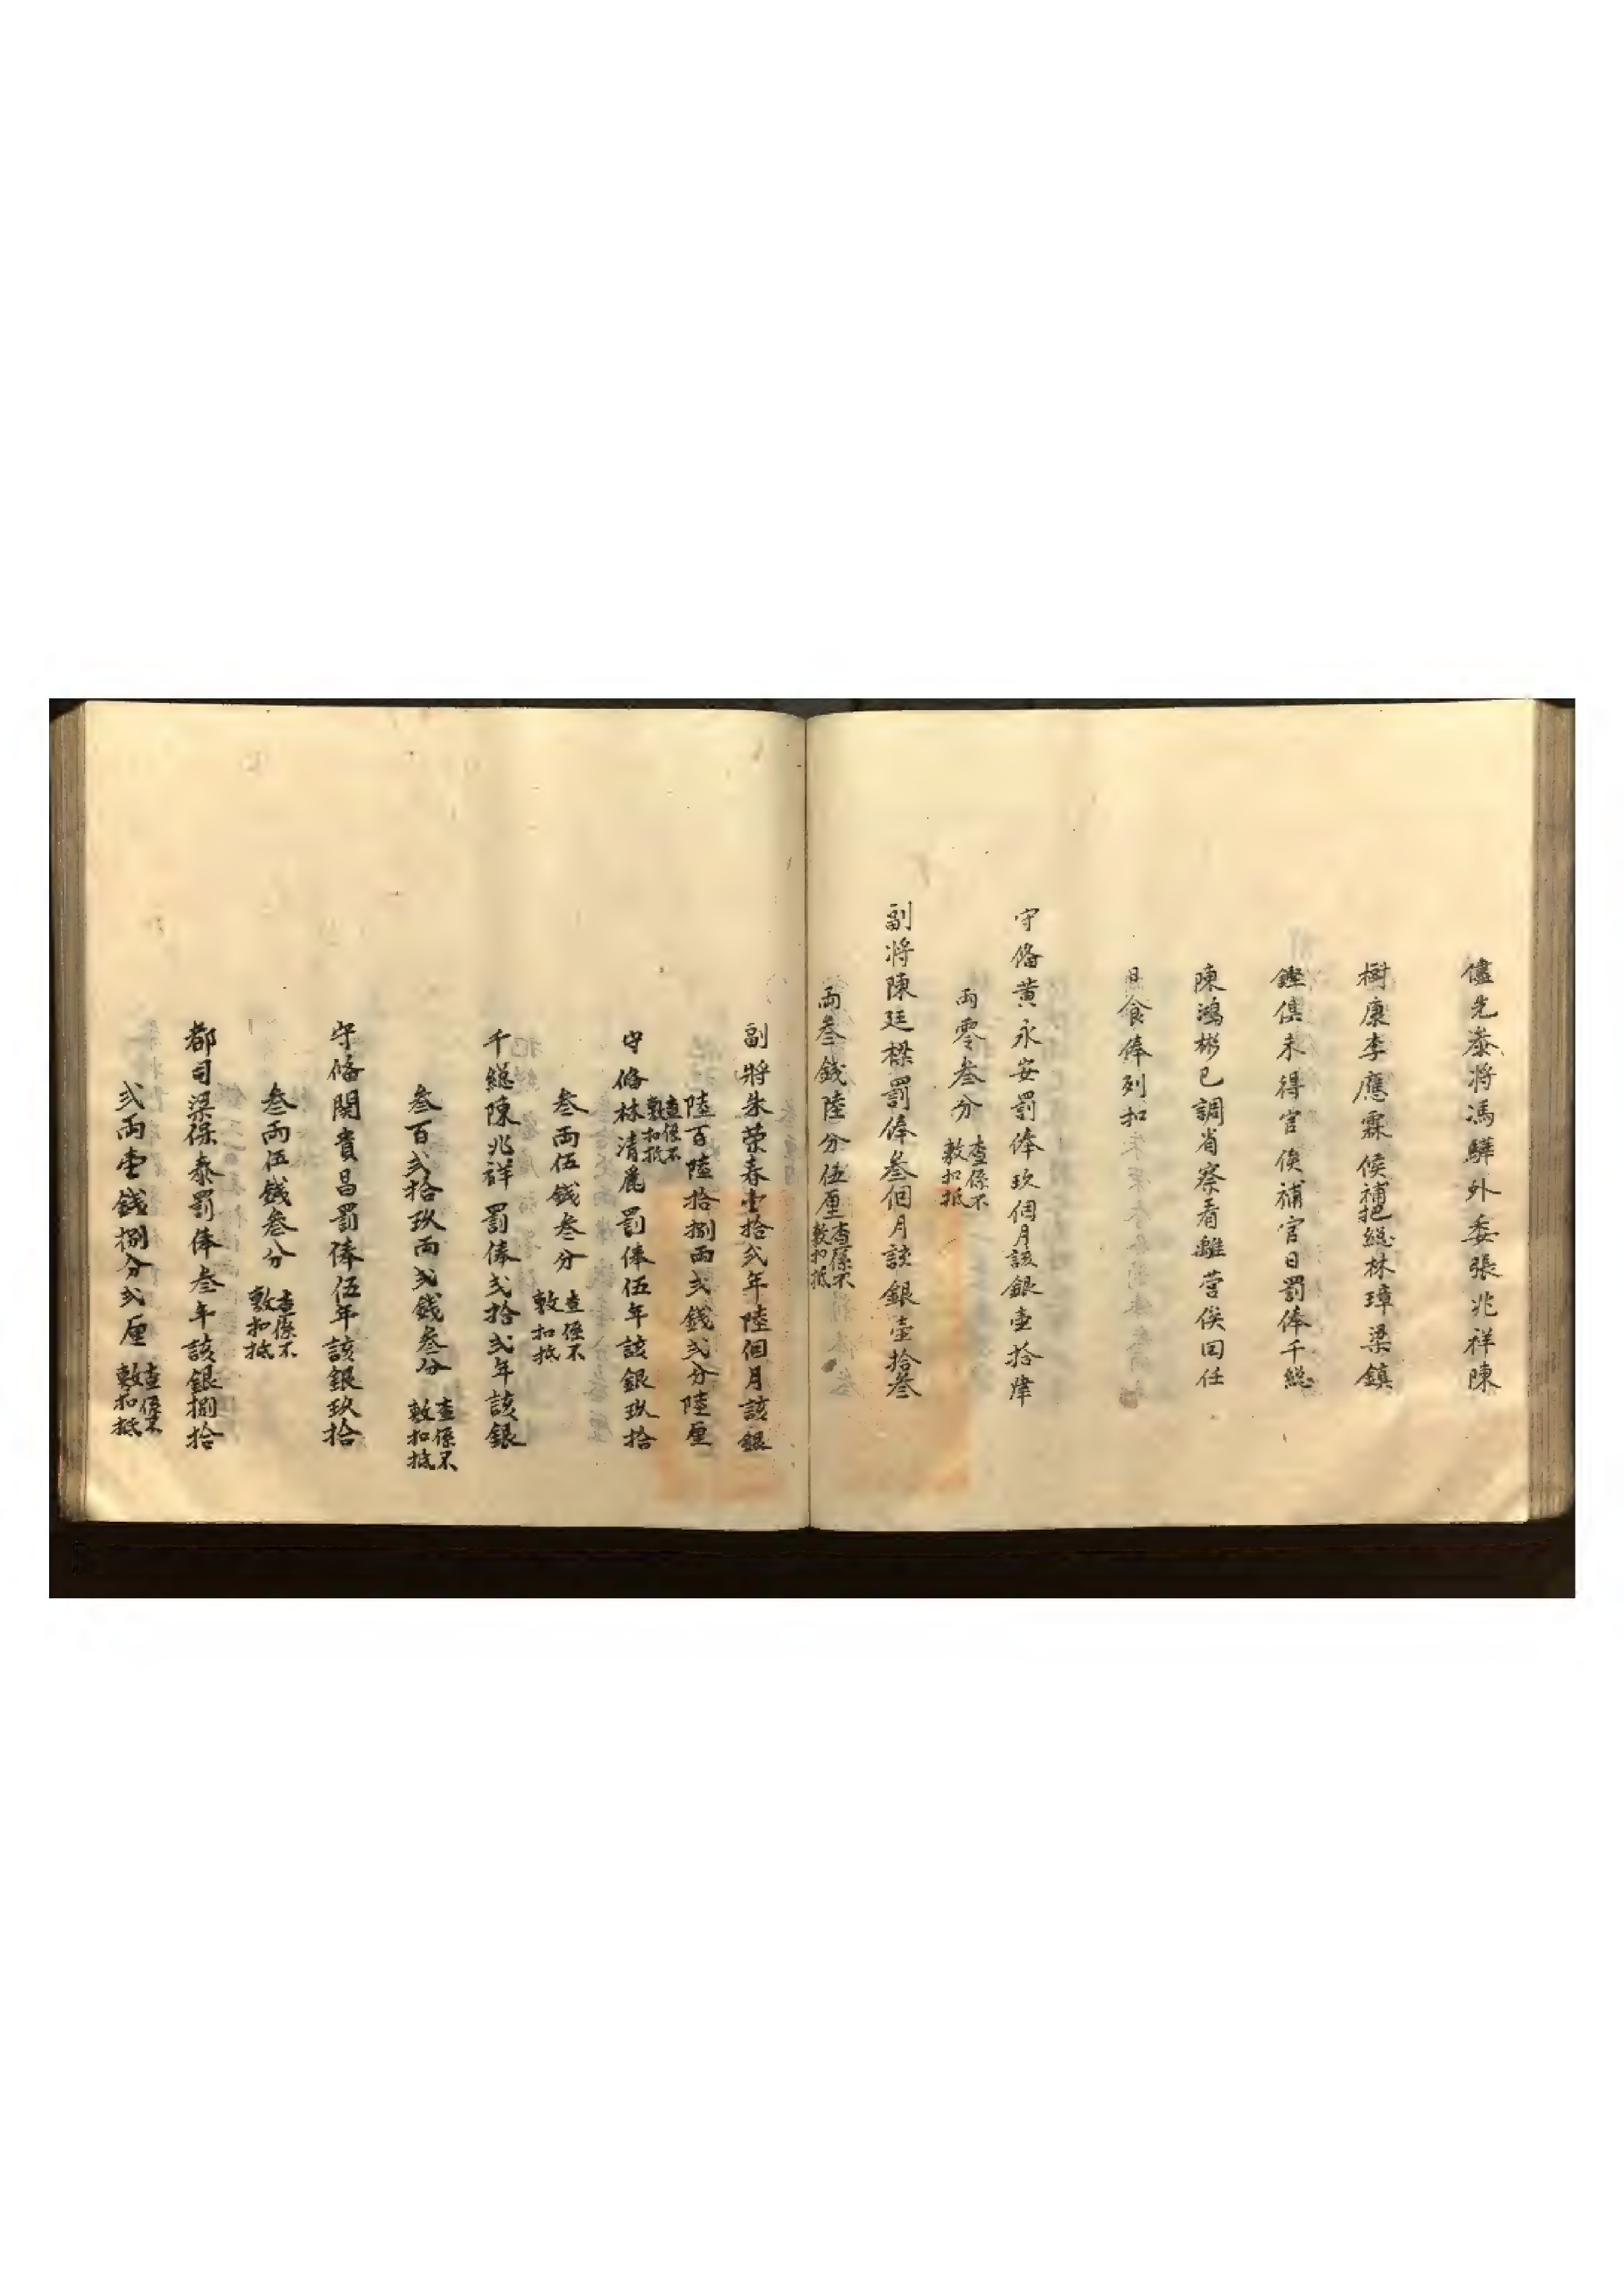 儘先叅将馮驊外委張兆祥陳
樹康李應霖候補把総林璋梁鎮
鏗俱未得官俟補官日罰俸千総
陳鴻彬已調省察看離营俟回任
食俸列扣
守俻黄永安罰俸玖個月該銀壹拾肆
両零叁分查係不敷扣抵
副将陳廷樑罰俸叁個月該銀壹拾叁
両叁錢陸分伍厘查係不敷扣抵
副將朱荣春壹拾弍年陸個月該銀
陸百陸拾捌両弍錢弍分陸厘查係不敷扣抵
守俻林清罰俸伍年該銀玖拾
叁両伍錢叁分查係不敷扣抵
千総陳兆祥罰俸弍拾弍年該銀
叁百弍拾玖両弍錢叁分查係不敷扣抵
守俻関貴昌罰俸伍年該銀玖拾
叁両伍錢叁分查係不敷扣抵
都司梁保泰罰俸叁年該銀捌拾
弍両壹錢捌分弍厘查係不敷扣抵